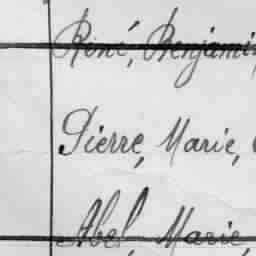 Réné, Benjamin
Pierre, Marie,
Abel, Marie,